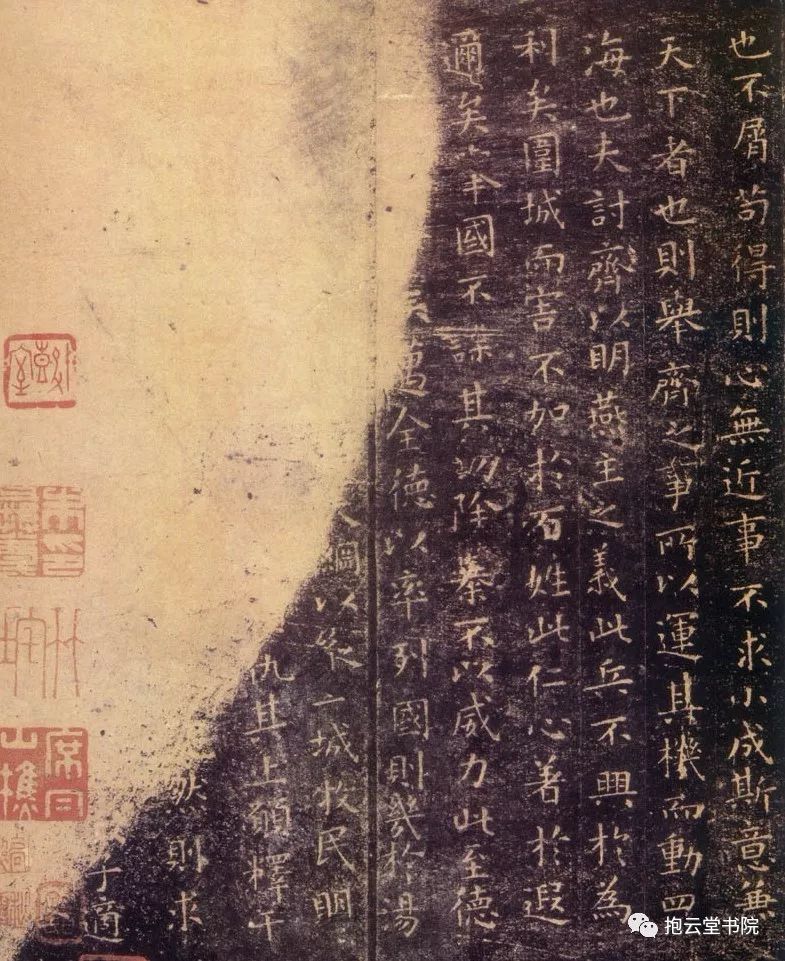 也不屑苟得則心無近事不求小成斯意兼
天下者也則舉齊之事所以運其機而動四
海也夫討齊以明燕主之義此兵不興於為
利矣圍城而害不加於百姓此仁心著於遐
邇矣舉國不謀其功除暴不以威力此至德
邁全德以率列國則幾於湯
綱以縱二城牧民明
仇其上願釋干
然則求
子適
竹垞
抱云堂书院